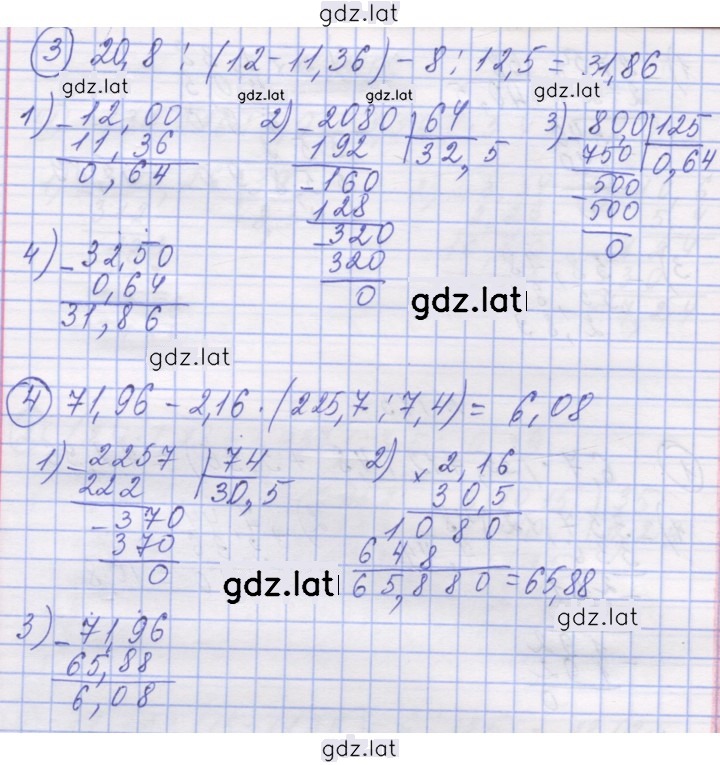 gdz.lat
③ 20,8 : (12-11,36) - 8 : 12,5 = 31,86
gdz.lat gdz.lat gdz.lat
1) -12,00
11,36
0,64
2) -2080 | 64
192 | 32,5
-160
128
-320
320
0
3) -80,0 | 125
750 | 0,64
-500
500
0
4) -32,50
0,64
31,86
gdz.lat
gdz.lat
④ 71,96 - 2,16 · (225,7 : 7,4) = 6,08
1) -2257 | 74
222 | 30,5
-370
370
0
2) × 2,16
30,5
1080
648
65,880 = 65,88
gdz.lat
gdz.lat
3) -71,96
65,88
6,08
gdz.lat